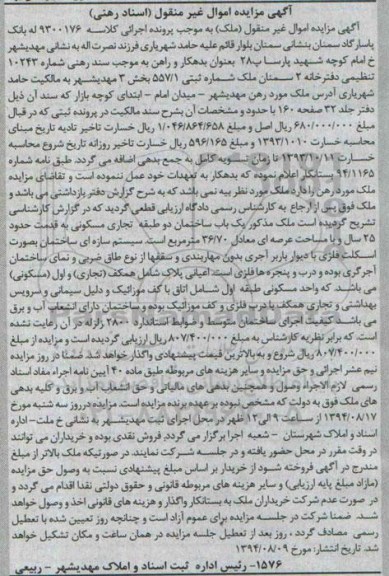 آگهی مزایده اموال غیر منقول (اسناد رهنی)
آگهی مزایده اموال غیر منقول (ملک) به موجب پرونده اجرائی کلاسه ۹۳۰۰۱۷۶ له بانک
پاسارگاد سمنان بنشانی سمنان بلوار قائم علیه حامد شهریاری فرزند نصرت اله به نشانی مهدیشهر
خ امام کوچه شهید پارسا پ۲۸ بعنوان بدهکار و راهن به موجب سند رهنی شماره ۱۰۲۴۳
تنظیمی دفترخانه ۲ سمنان ملک شماره ثبتی ۵۵۷/۱ بخش ۳ مهدیشهر به مالکیت حامد
شهریاری آدرس ملک مورد رهن مهدیشهر - میدان امام - ابتدای کوچه بازار که سند آن ذیل
دفتر جلد ۳۲ صفحه ۱۶۰ با حدود و مشخصات آن بشرح سند مالکیت در پرونده ثبتی که در قبال
مبلغ ۶۸۰/۰۰۰/۰۰۰ ریال اصل و مبلغ ۱/۰۴۶/۸۶۴/۶۵۸ ریال خسارت تاخیر تادیه تاریخ مبنای
محاسبه خسارت ۱۳۹۳/۱۰/۱۰ و مبلغ ۵۹۶/۱۶۵ ریال خسارت تاخیر روزانه تاریخ شروع محاسبه
خسارت ۱۳۹۳/۱۰/۱۱ تا زمان تسویه کامل به جمع بدهی اضافه می گردد. طبق نامه شماره
۹۴/۱۱۶۵ بستانکار اعلام نموده که بدهکار به تعهدات خود عمل ننموده است و تقاضای مزایده
ملک مورد رهن را دارد ملک مورد نظر بیه نمی باشد که به شرح گزارش دفتر بازداشتی می باشد و
ملک فوق پس از ارجاع به کارشناس رسمی دادگاه ارزیابی قطعی گردید که در گزارش کارشناسی
تشریح گردیده است ملک مذکور یک باب ساختمان دو طبقه تجاری مسکونی به قدمت حدود
۲۵ سال و با مساحت عرصه ای معادل ۳۶/۷۰ مترمربع است. سیستم سازه ای ساختمان بصورت
اسکلت فلزی با دیوار باربر آجری بدون مهاربندی و سقفها از نوع طاق ضربی و نمای ساختمان
آجرگری بوده و درب و پنجره ها فلزی است. اعیانی پلاک شامل همکف (تجاری) و اول (مسکونی)
می باشد. که واحد مسکونی طبقه اول شامل اتاق با کف موزائیک و دلیل سیمانی و سرویس
بهداشتی و تجاری همکف با درب فلزی و کف موزائیک بوده و ساختمان دارای انشعاب آب و برق
می باشد کیفیت اجرای ساختمان متوسط و ضوابط استاندارد ۲۸۰۰ زلزله در آن رعایت نشده
است. که برابر نظریه کارشناس به مبلغ ۸۰۷/۴۰۰/۰۰۰ ریال ارزیابی گردیده است و مزایده از مبلغ
۸۰۷/۴۰۰/۰۰۰ ریال شروع و به بالاترین قیمت پیشنهادی واگذار خواهد شد ضمنا در روز مزایده
نیم عشر اجرائی و حق مزایده و سایر هزینه های مربوطه طبق ماده ۴۰ آیین نامه اجراء مفاد اسناد
رسمی لازم الاجراء وصول و همچنین بدهی های مالیاتی و حق انشعاب آب و برق و کلیه بدهی
های ملک فوق به دولت که مشخص نبوده بر عهده برنده مزایده است. مزایده در روز سه شنبه مورخ
۱۳۹۴/۰۸/۱۷ از ساعت ۹ الی ۱۲ ظهر در محل اجرای ثبت مهدیشهر به نشانی خ ملت - اداره
اسناد و املاک شهرستان - شعبه اجرا برگزار می گردد. فروش نقدی بوده و خریداران می توانند
در وقت مقرر در محل حضور یافته و در جلسه شرکت نمایند. در صورتیکه ملک بالاتر از مبلغ
مندرج در آگهی فروخته شود از خریدار بر اساس مبلغ پیشنهادی نسبت به وصول حق مزایده
(مازاد مبلغ پایه ارزیابی) و سایر هزینه های مربوطه قانونی و حقوق دولتی نقدا اقدام می گردد و
در صورت عدم شرکت خریداران ملک به بستانکار واگذار و هزینه های قانونی اخذ و وصول خواهد
شد. ضمنا شرکت در جلسه مزایده برای عموم آزاد است و چنانچه روز تعیین شده با تعطیل
رسمی مصادف گردد ، روز بعد از تعطیل جلسه مزایده در همان ساعت و مکان تشکیل خواهد
شد. تاریخ انتشار: مورخ ۱۳۹۴/۰۸/۰۹
۱۵۷۶- رئیس اداره ثبت اسناد و املاک مهدیشهر - ربیعی